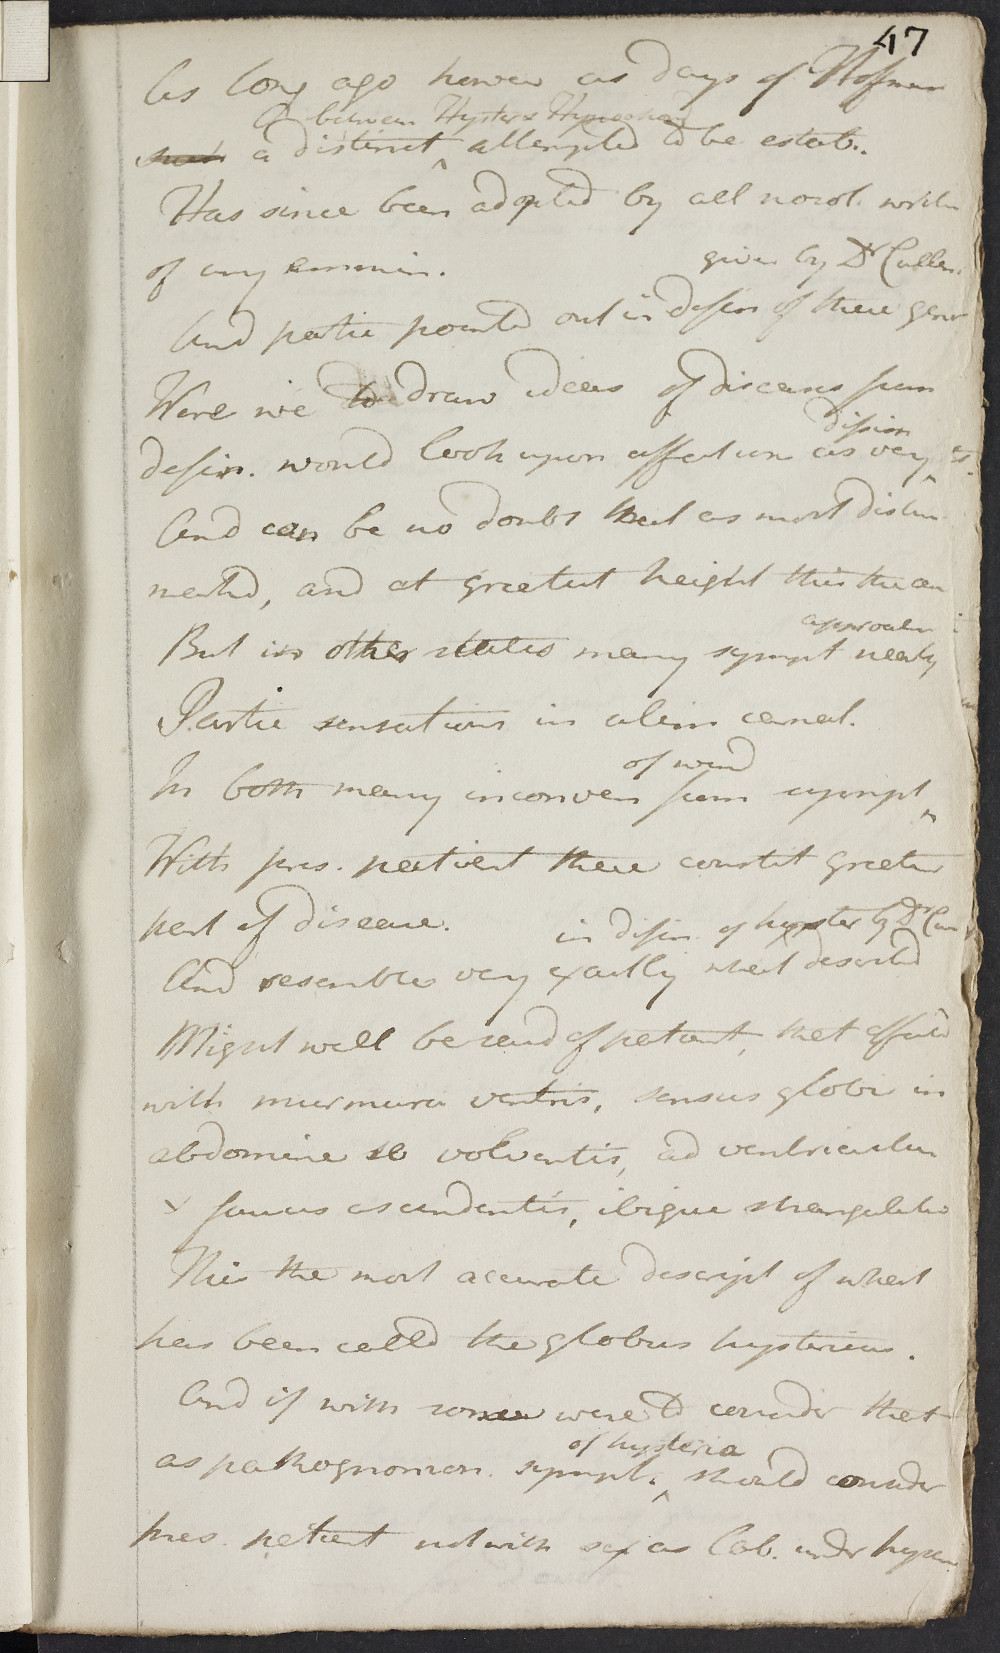 47
As long ago howev as days of Hoffman
between Hyster & Hypochond
such a distinct attempted to be estab.
Has since been adopted by all nosol. write
of any eminen.
given by Dr Cullen.
And partic pointd out in defin of these gener
Were we to draw ideas of diseases from
dissim
defin. would look upon affection as very
And can be no doubt that as most distin
marked, and at greatest height this the ca
approach
But in other states many sympt nearly
Partic sensations in alim canal.
of wind
In both many inconven from sympt
With pres. patient these constit greater
part of disease.
in defin of hyster by Dr Cull
And resembles very exactly what described
Might well be said of patient, that affectd
with murmura ventris, sensus globi in
abdomine se volventis, ad ventriculum
& fauces ascendentis, ibique strangulatio
This the most accurate descript of what
has been calld the globus hystericus.
And if with some were to consider that
of hysteria
as pathognomon. sympt. should consider
pres. patient notwith sex as lab. under hyster